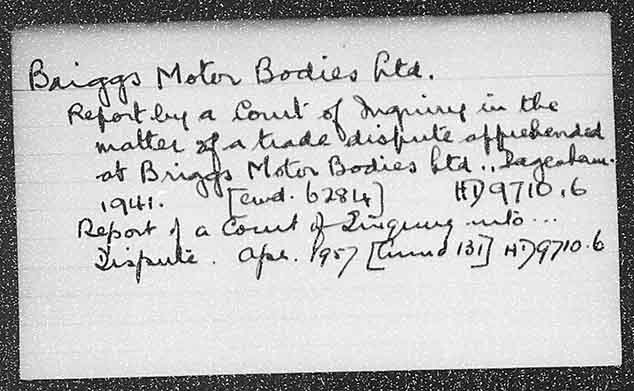 Briggs Motor Bodies Ltd.
Report by a Court of Inquiry in the
matter of a trade dispute apprehended
at Briggs Motor Bodies Ltd., Dagenham.
1941. [cmd. 6284] HD9710.6
Report of a Court of Inquiry into...
Dispute. Apr. 1957 [Cmnd 131] HD9710.6